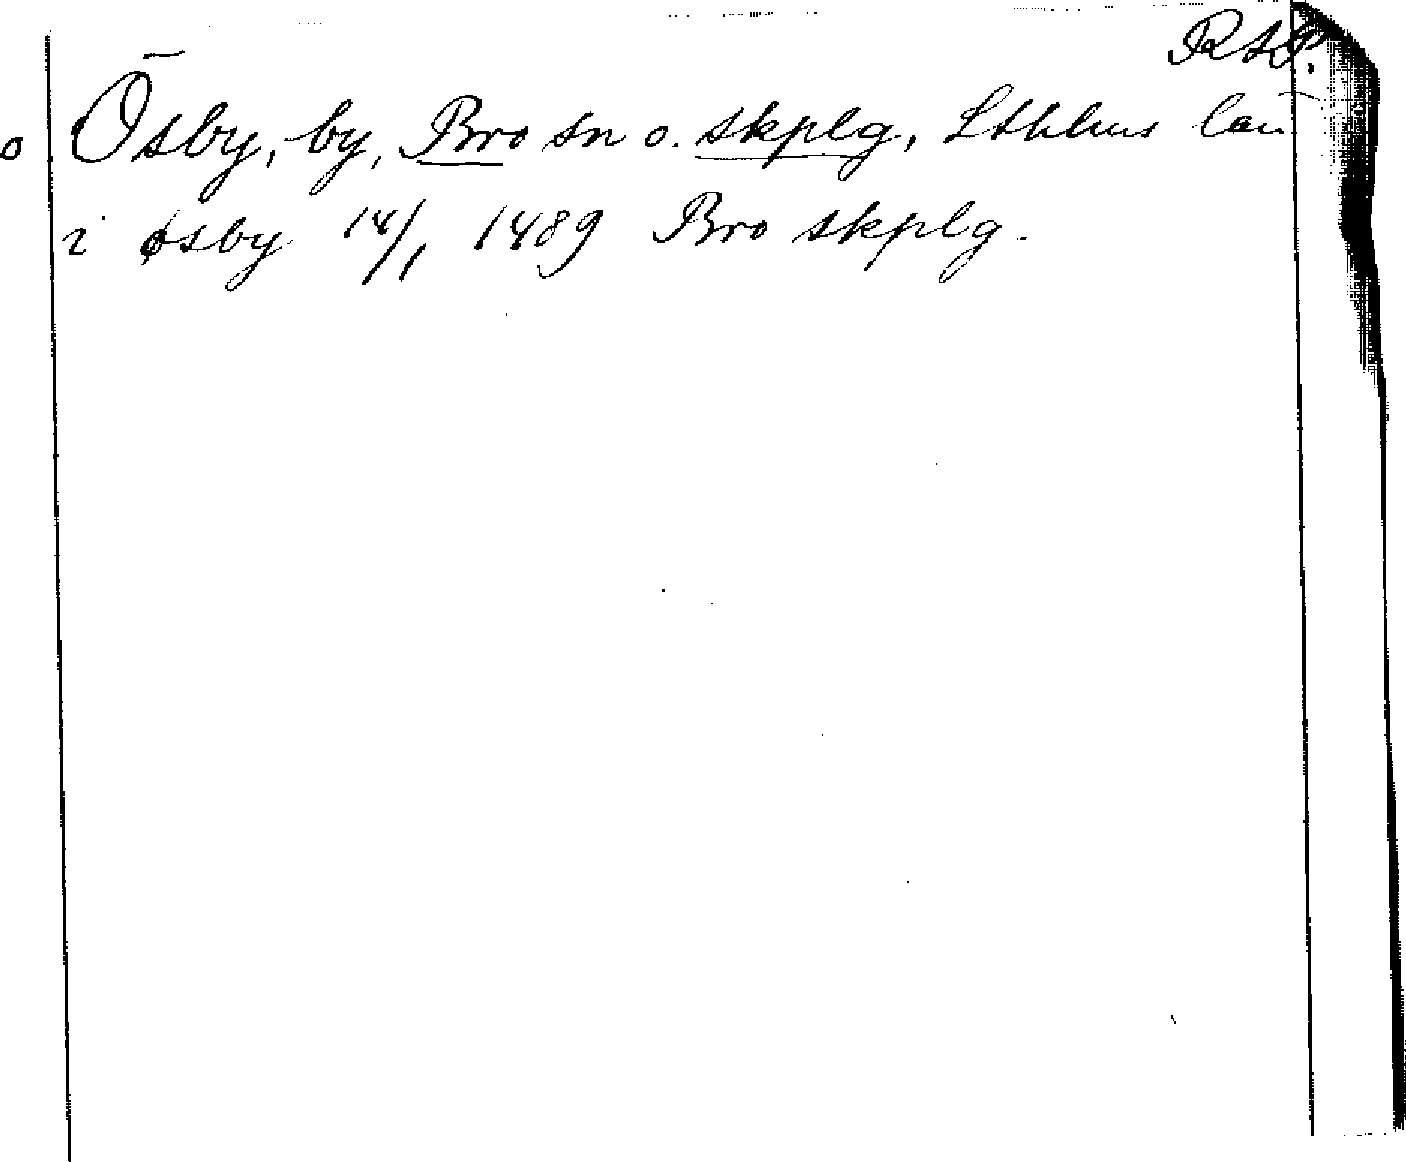 RAP.
o Ösby, by, Bro sn o. skplg, Sthlms län
i øsby 14/1 1489 Bro skplg.